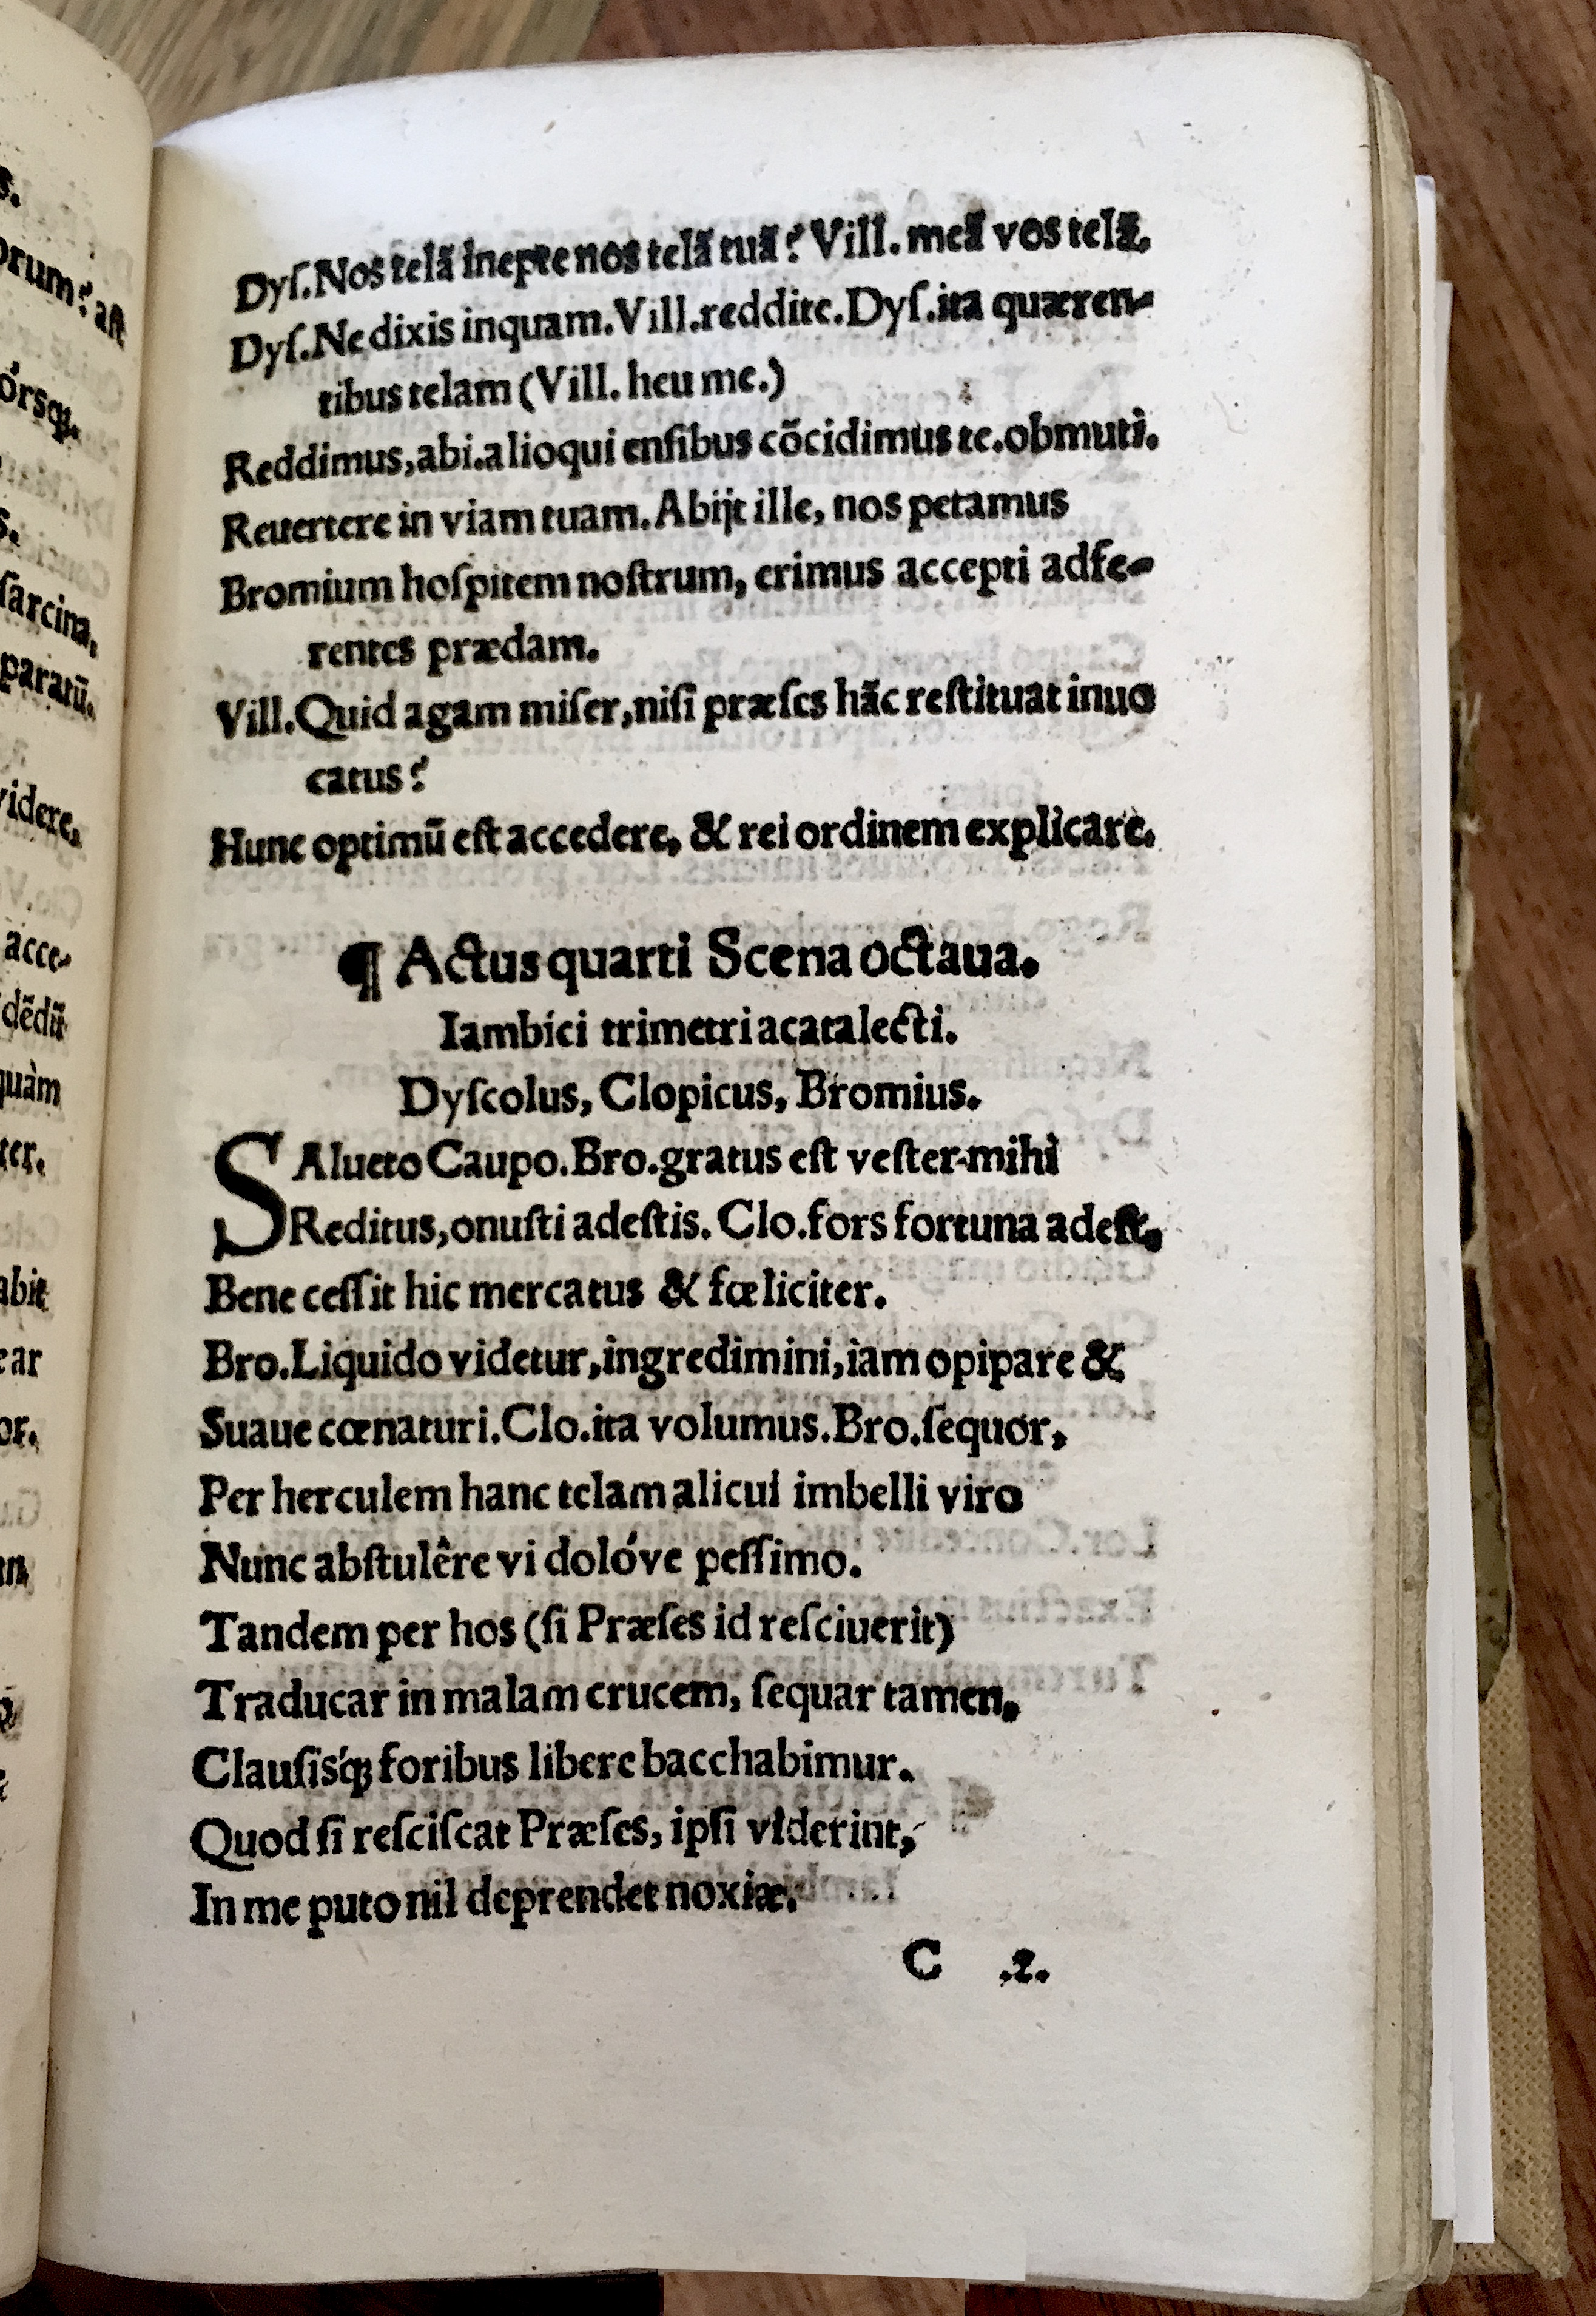 s.
orum? ast
órsq;.
s.
sarcina,
paratũ.
videre,
acce-
dẽdũ
quàm
ter.
abit
car
or.
Dyſ. Nos telã inepte nos telã tuã? Vill. meã vos telã.
Dyſ. Ne dixis inquam. Vill. reddite. Dyſ. ita quæren-
tibus telam (Vill. heu me.)
Reddimus, abi. alioqui enſibus cõcidimus te. obmuti.
Reuertere in viam tuam. Abijt ille, nos petamus
Bromium hoſpitem noſtrum, erimus accepti adfe-
rentes prædam.
Vill. Quid agam miſer, niſi præſes hãc reſtituat inuo
catus?
Hunc optimũ eſt accedere, & rei ordinem explicare.
¶ Actus quarti Scena octaua.
Iambici trimetri acatalecti.
Dyſcolus, Clopicus, Bromius.
SAlueto Caupo. Bro. gratus eſt veſter mihi
Reditus, onuſti adeſtis. Clo. fors fortuna adeſt.
Bene ceſſit hic mercatus & fœliciter.
Bro. Liquido videtur, ingredimini, iam opipare &
Suaue cœnaturi. Clo. ita volumus. Bro. ſequor,
Per herculem hanc telam alicui imbelli viro
Nunc abſtulêre vi dolóve peſſimo.
Tandem per hos (ſi Præſes id reſciuerit)
Traducar in malam crucem, ſequar tamen.
Clauſisq́; foribus libere bacchabimur.
Quod ſi reſciſcat Præſes, ipſi viderint,
In me puto nil deprendet noxiæ.
C .2.